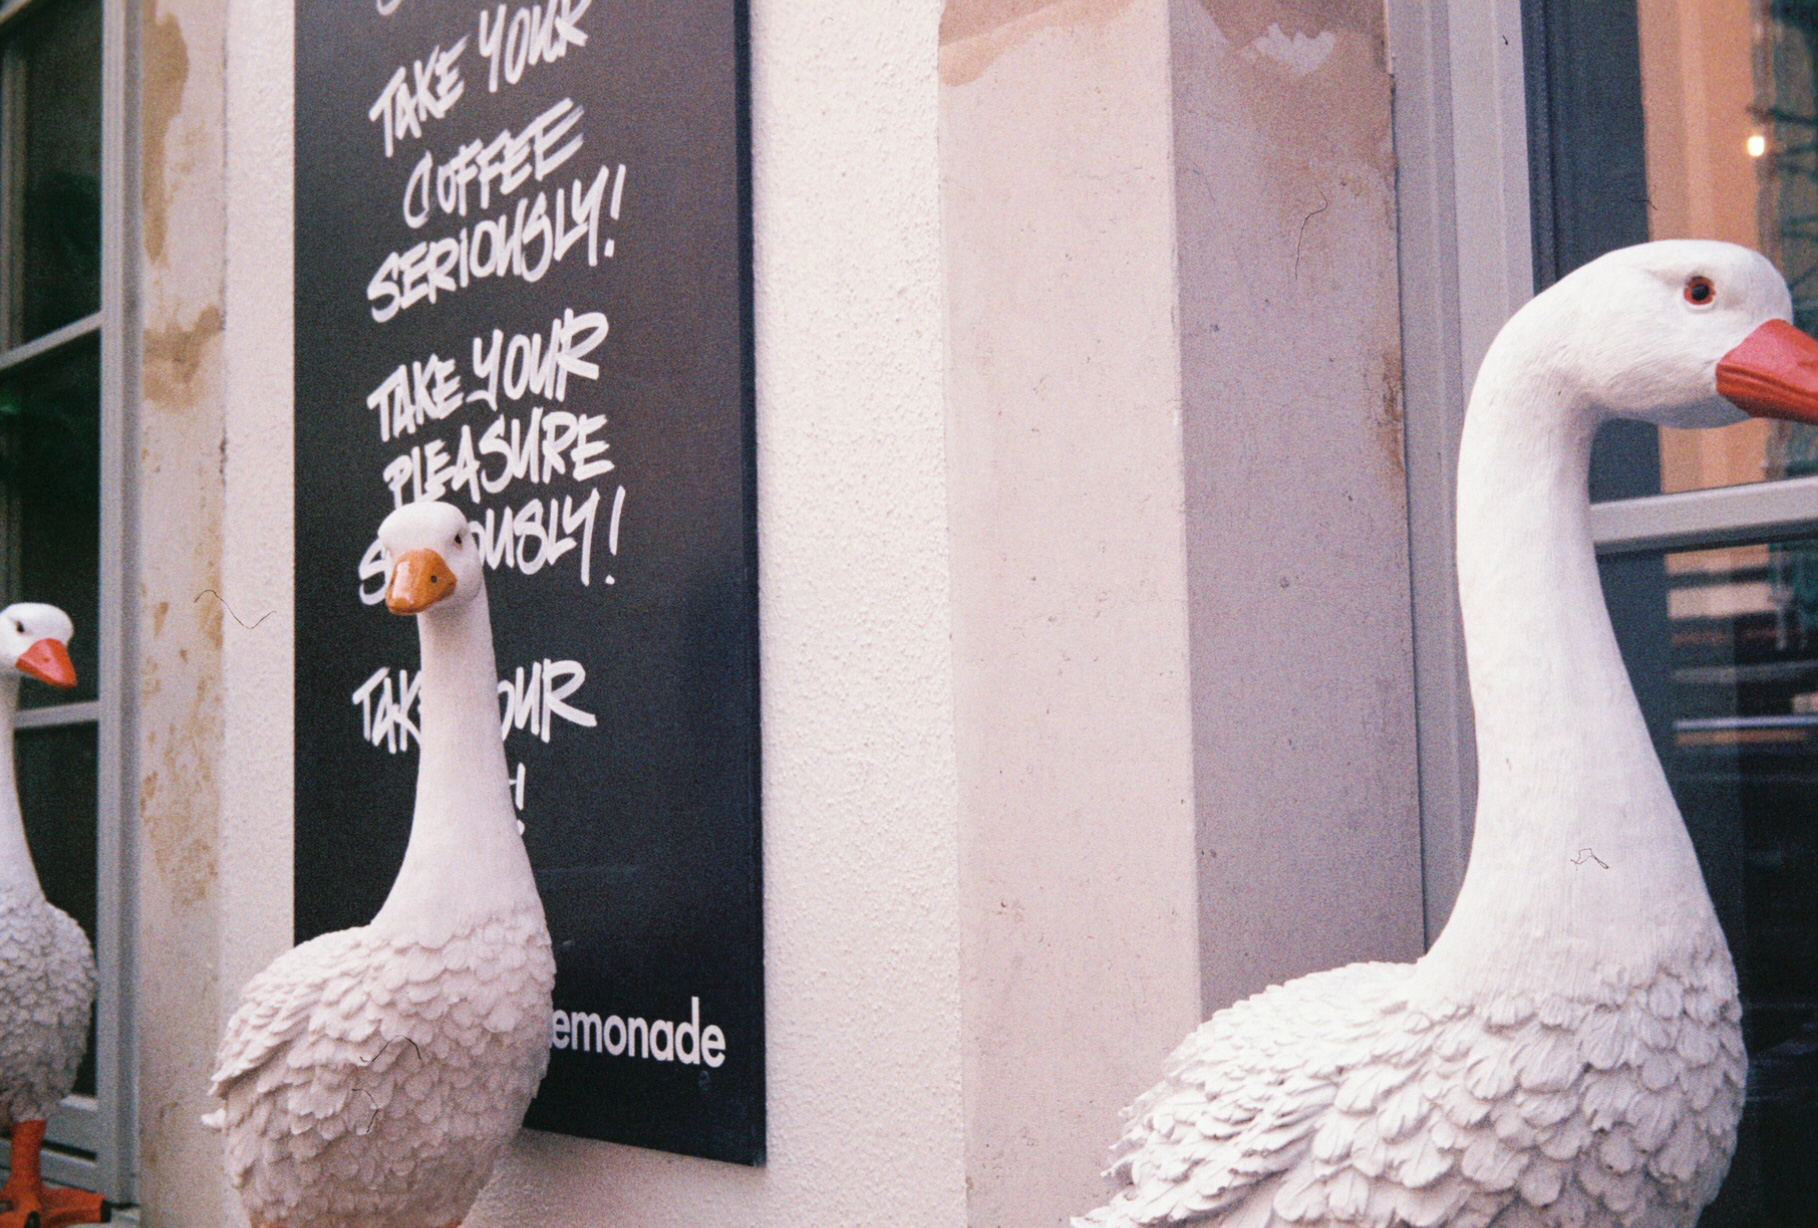 TAKE YOUR
COFFEE
SERIOUSLY!
TAKE YOUR
PLEASURE
OUSLY!
TAKE YOUR
emonade